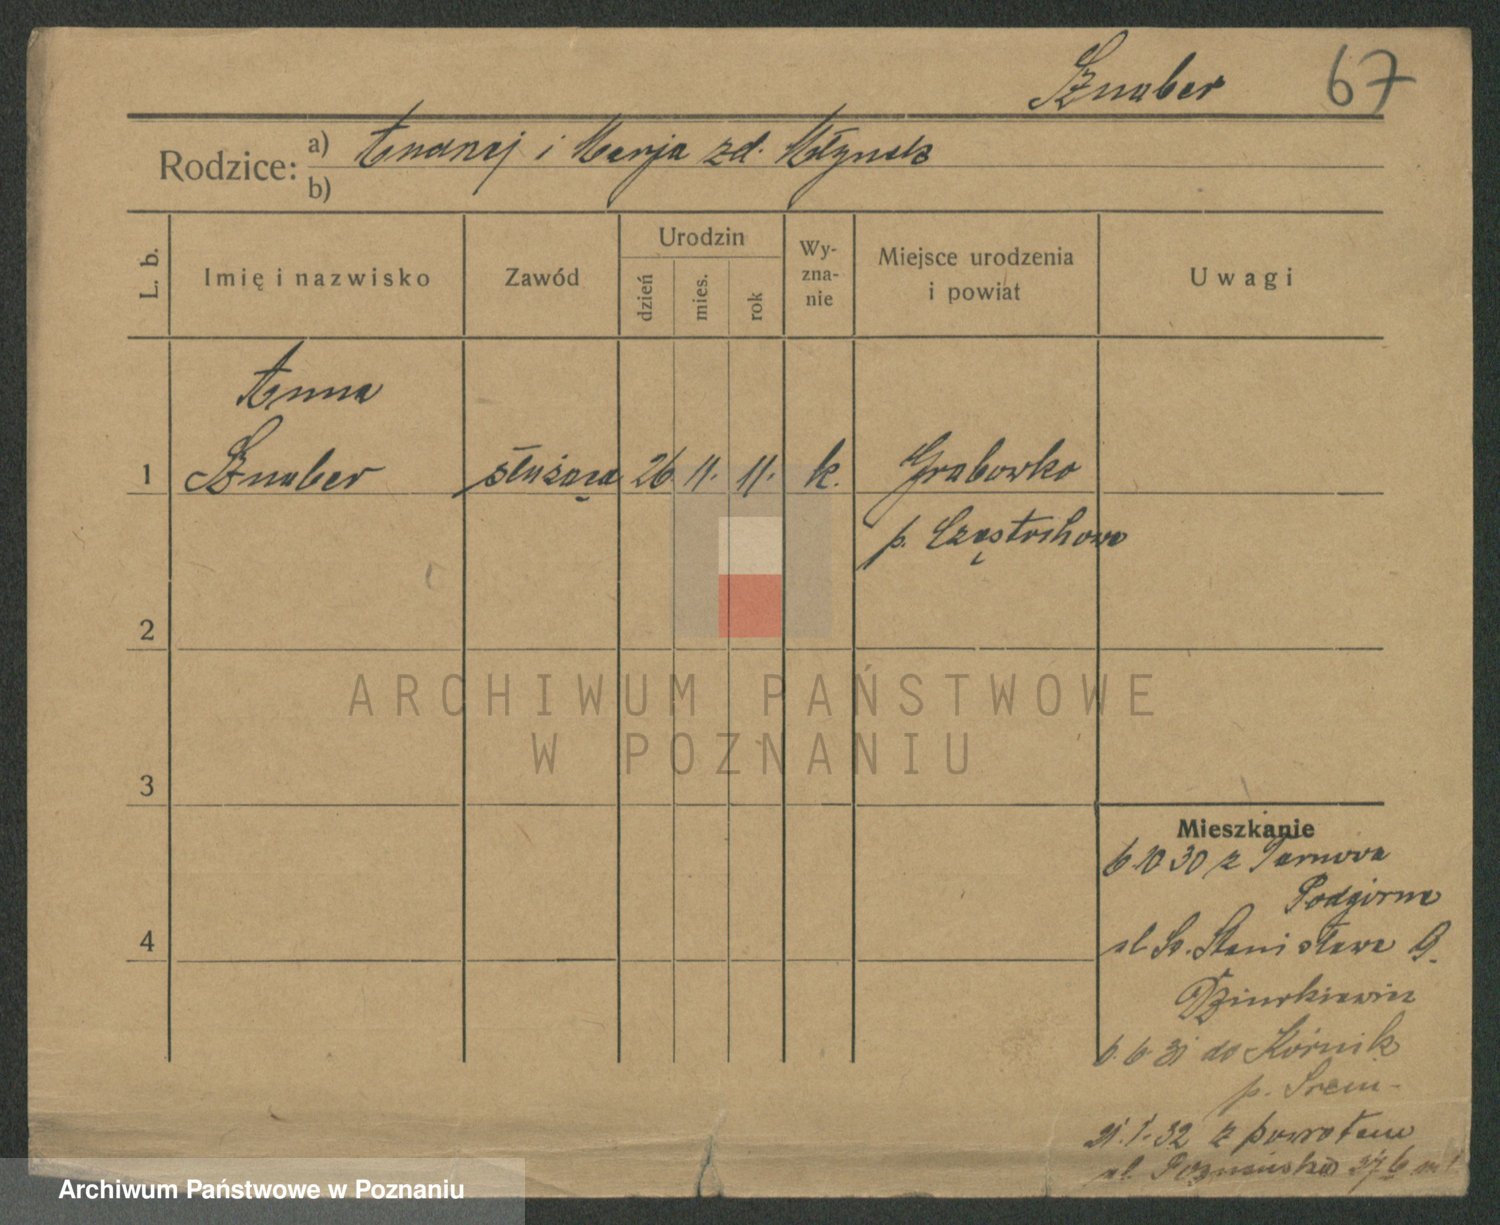 Sznaber 67
Rodzice: a) Andrzej i Marja zd. Młynek
b)
L. b. Imię i nazwisko Zawód Urodzin dzień mies. rok Wy-zna-nie Miejsce urodzenia i powiat Uwagi
Anna
1 Sznaber służąca 26 11. 11. k. Grabowko
p. Częstochowa
2
ARCHIWUM PAŃSTWOWE
W POZNANIU
3
Mieszkanie
6.10 30 z Tarnova
Podgórne
ul. Św. Stanisława 9.
6.6 31 do Kórnik
p. Śrem
21.1.32 z powrotem
ul. Poznańska
4
Archiwum Państwowe w Poznaniu